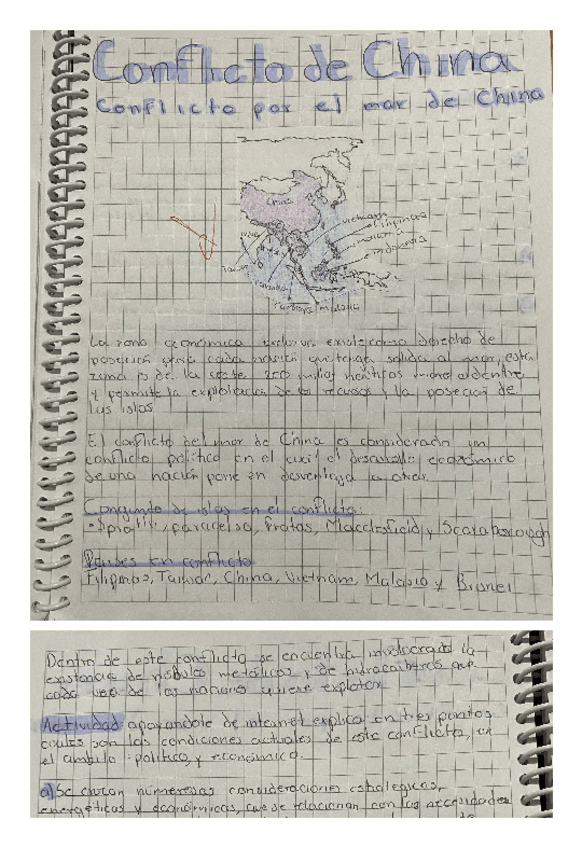 Conflicto de China
Conflicto por el mar de China
China
Vietnam
Filipinas
malasia
Indonesia
La zona económica exclusiva como derecho de
posesión para cada nación que tenga salida al mar, esta
zona es de la costa 200 millas náuticas
y permite la explotación de los recursos y la posesión de
las islas
El conflicto del mar de China es considerado un
conflicto político en el cual el desarrollo económico
de una nación pone en desventaja a otras.
Conjunto de islas en el conflicto:
• Spratly, paracelso, Pratas, Macclesfield y Scarborough
Países En conflicto
Filipinas, Taiwan, China, Vietnam, Malasia y Brunei
Dentro de este conflicto se encuentra involucrada la
existencia de nódulos metálicos y de hidrocarburos que
cada una de las naciones quiere explotar
Actividad apoyandote de internet explica en tres puntos
cuales son las condiciones actuales de este conflicto, en
el ambito político y económico.
a) Se cruzan numerosas consideraciones estrategicas,
energéticas y económicas, que se relacionan con las necesidades